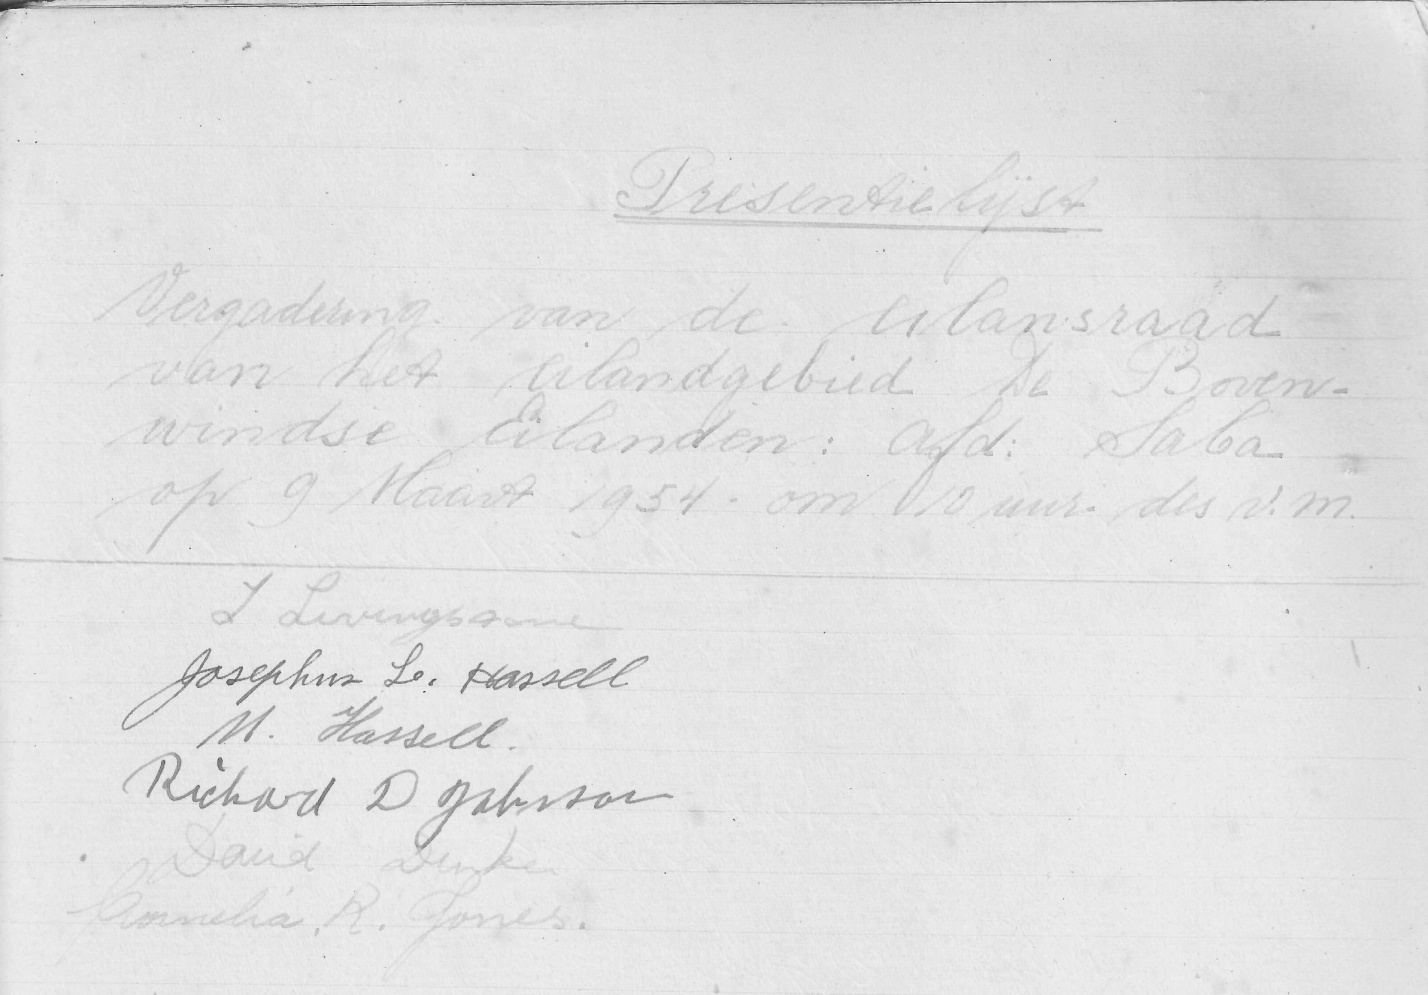 Presentielijst
Vergadering van de eilansraad
van het eilandgebied De Boven-
windse Eilanden: Afd: Saba
op 9 Maart 1954. om 10 uur. des v.m.
L Levingstone
Josephus L. Hassell
M. Hassell.
Richard D Johnson
David
Cornelia. R. Jones.